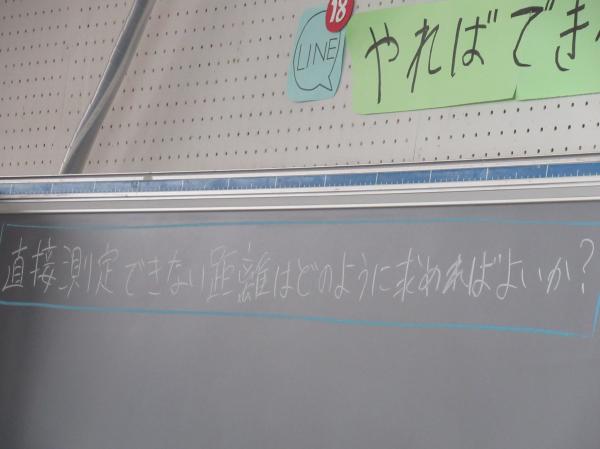 18
LINE
やればでき
直接測定できない距離はどのように求めればよいか?